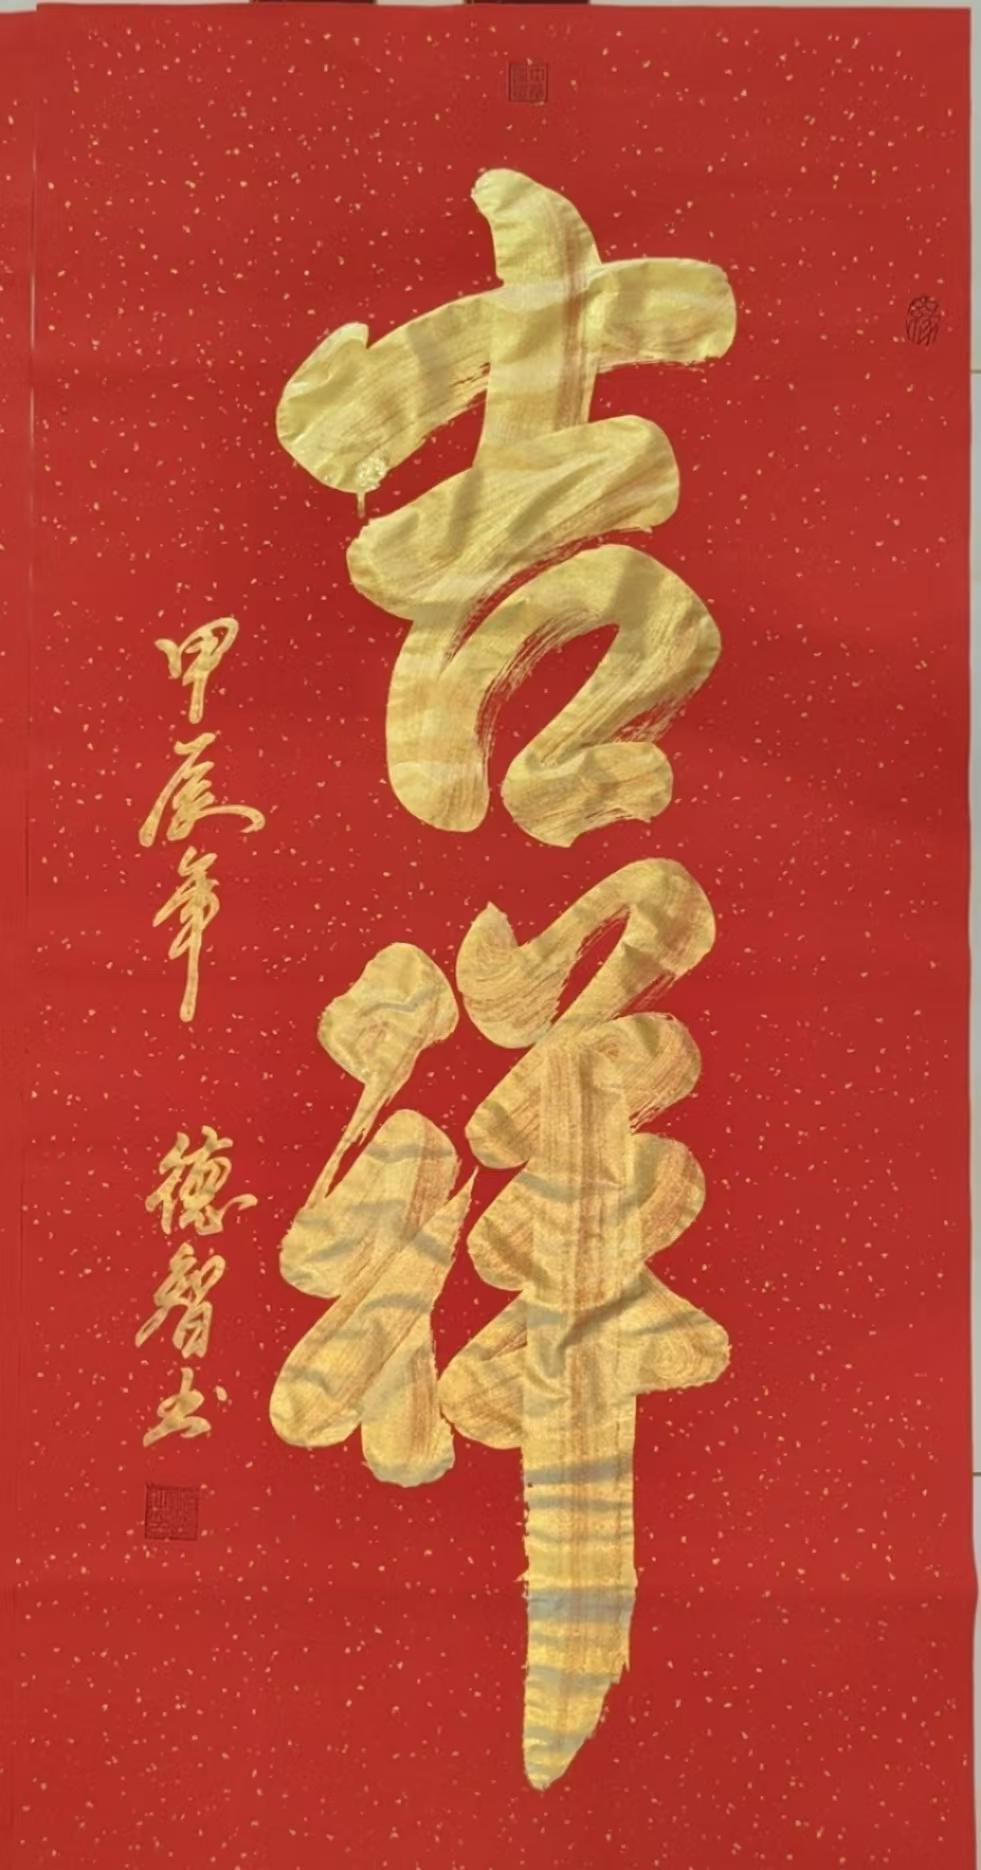 吉祥
甲辰年
德智书